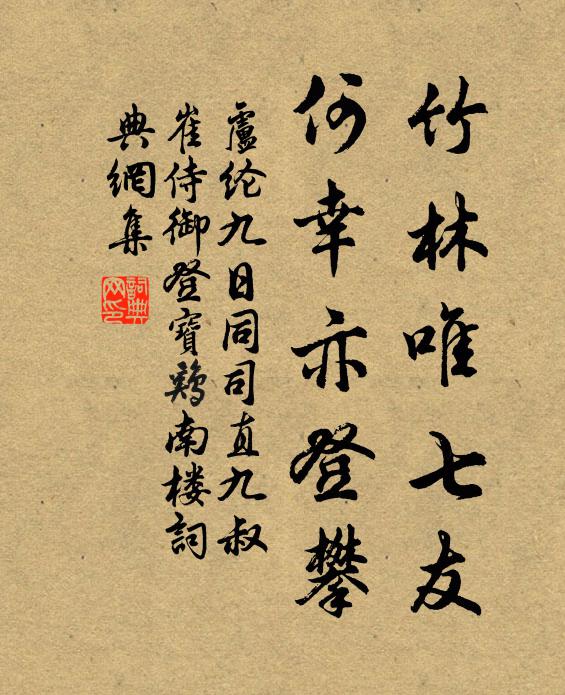 竹林唯七友
何幸亦登攀
盧纶九日同司直九叔
崔侍御登寶鷄南楼詞
典網集
詞典
网印